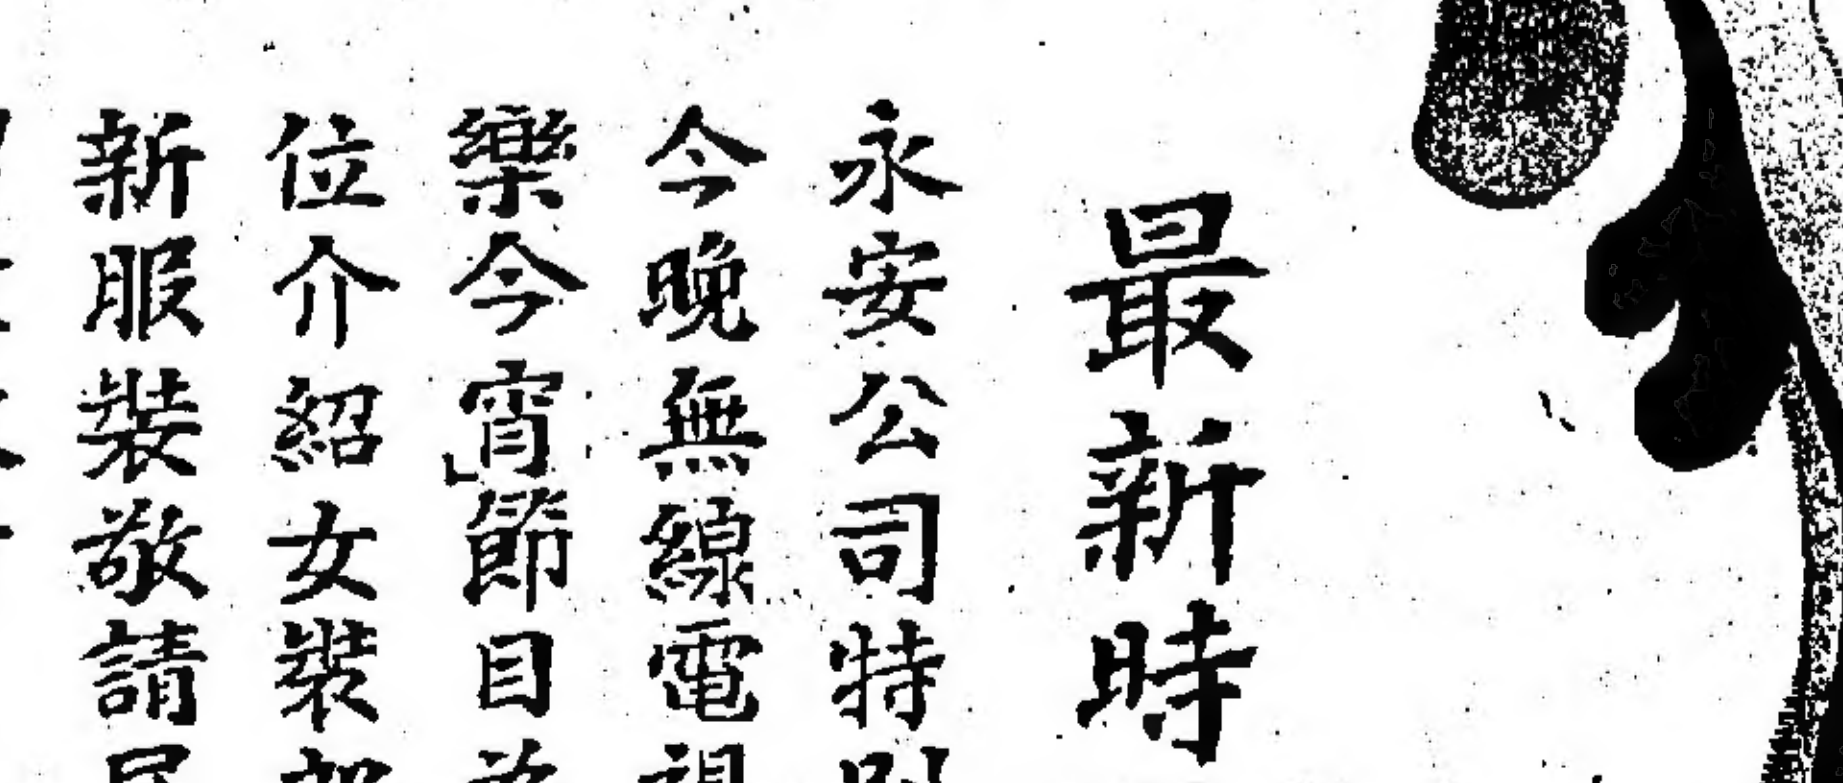 最新時
永安公司特別
今晚無線電視
樂今宵」節目
位介紹女裝部
新服裝敬請